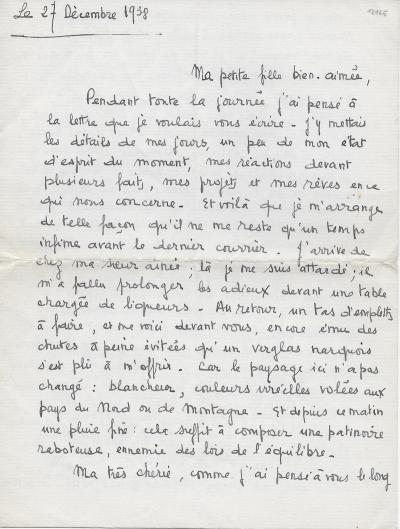 Le 27 Décembre 1938
Ma petite fille bien-aimée,
Pendant toute la journée j'ai pensé à
la lettre que je voulais vous écrire - J'y mettais
les détails de mes jours, un peu de mon état
d'esprit du moment, mes réactions devant
plusieurs faits, mes projets et mes rêves en ce
qui nous concerne - Et voilà que je m'arrange
de telle façon qu'il ne me reste qu'un temps
infime avant le dernier courrier. J'arrive de
chez ma sœur aînée ; là je me suis attardé ; il
m'a fallu prolonger les adieux devant une table
chargée de liqueurs - Au retour, un tas d'emplettes
à faire, et me voici devant vous, encore ému des
chutes à peine évitées qu'un verglas narquois
s'est plû à m'offrir. Car le paysage ici n'a pas
changé : blancheur, couleurs irréelles volées aux
pays du Nord ou de Montagne - Et depuis ce matin
une pluie fine : cela suffit à composer une patinoire
raboteuse, ennemie des lois de l'équilibre -
Ma très chérie, comme j'ai pensé à vous le long